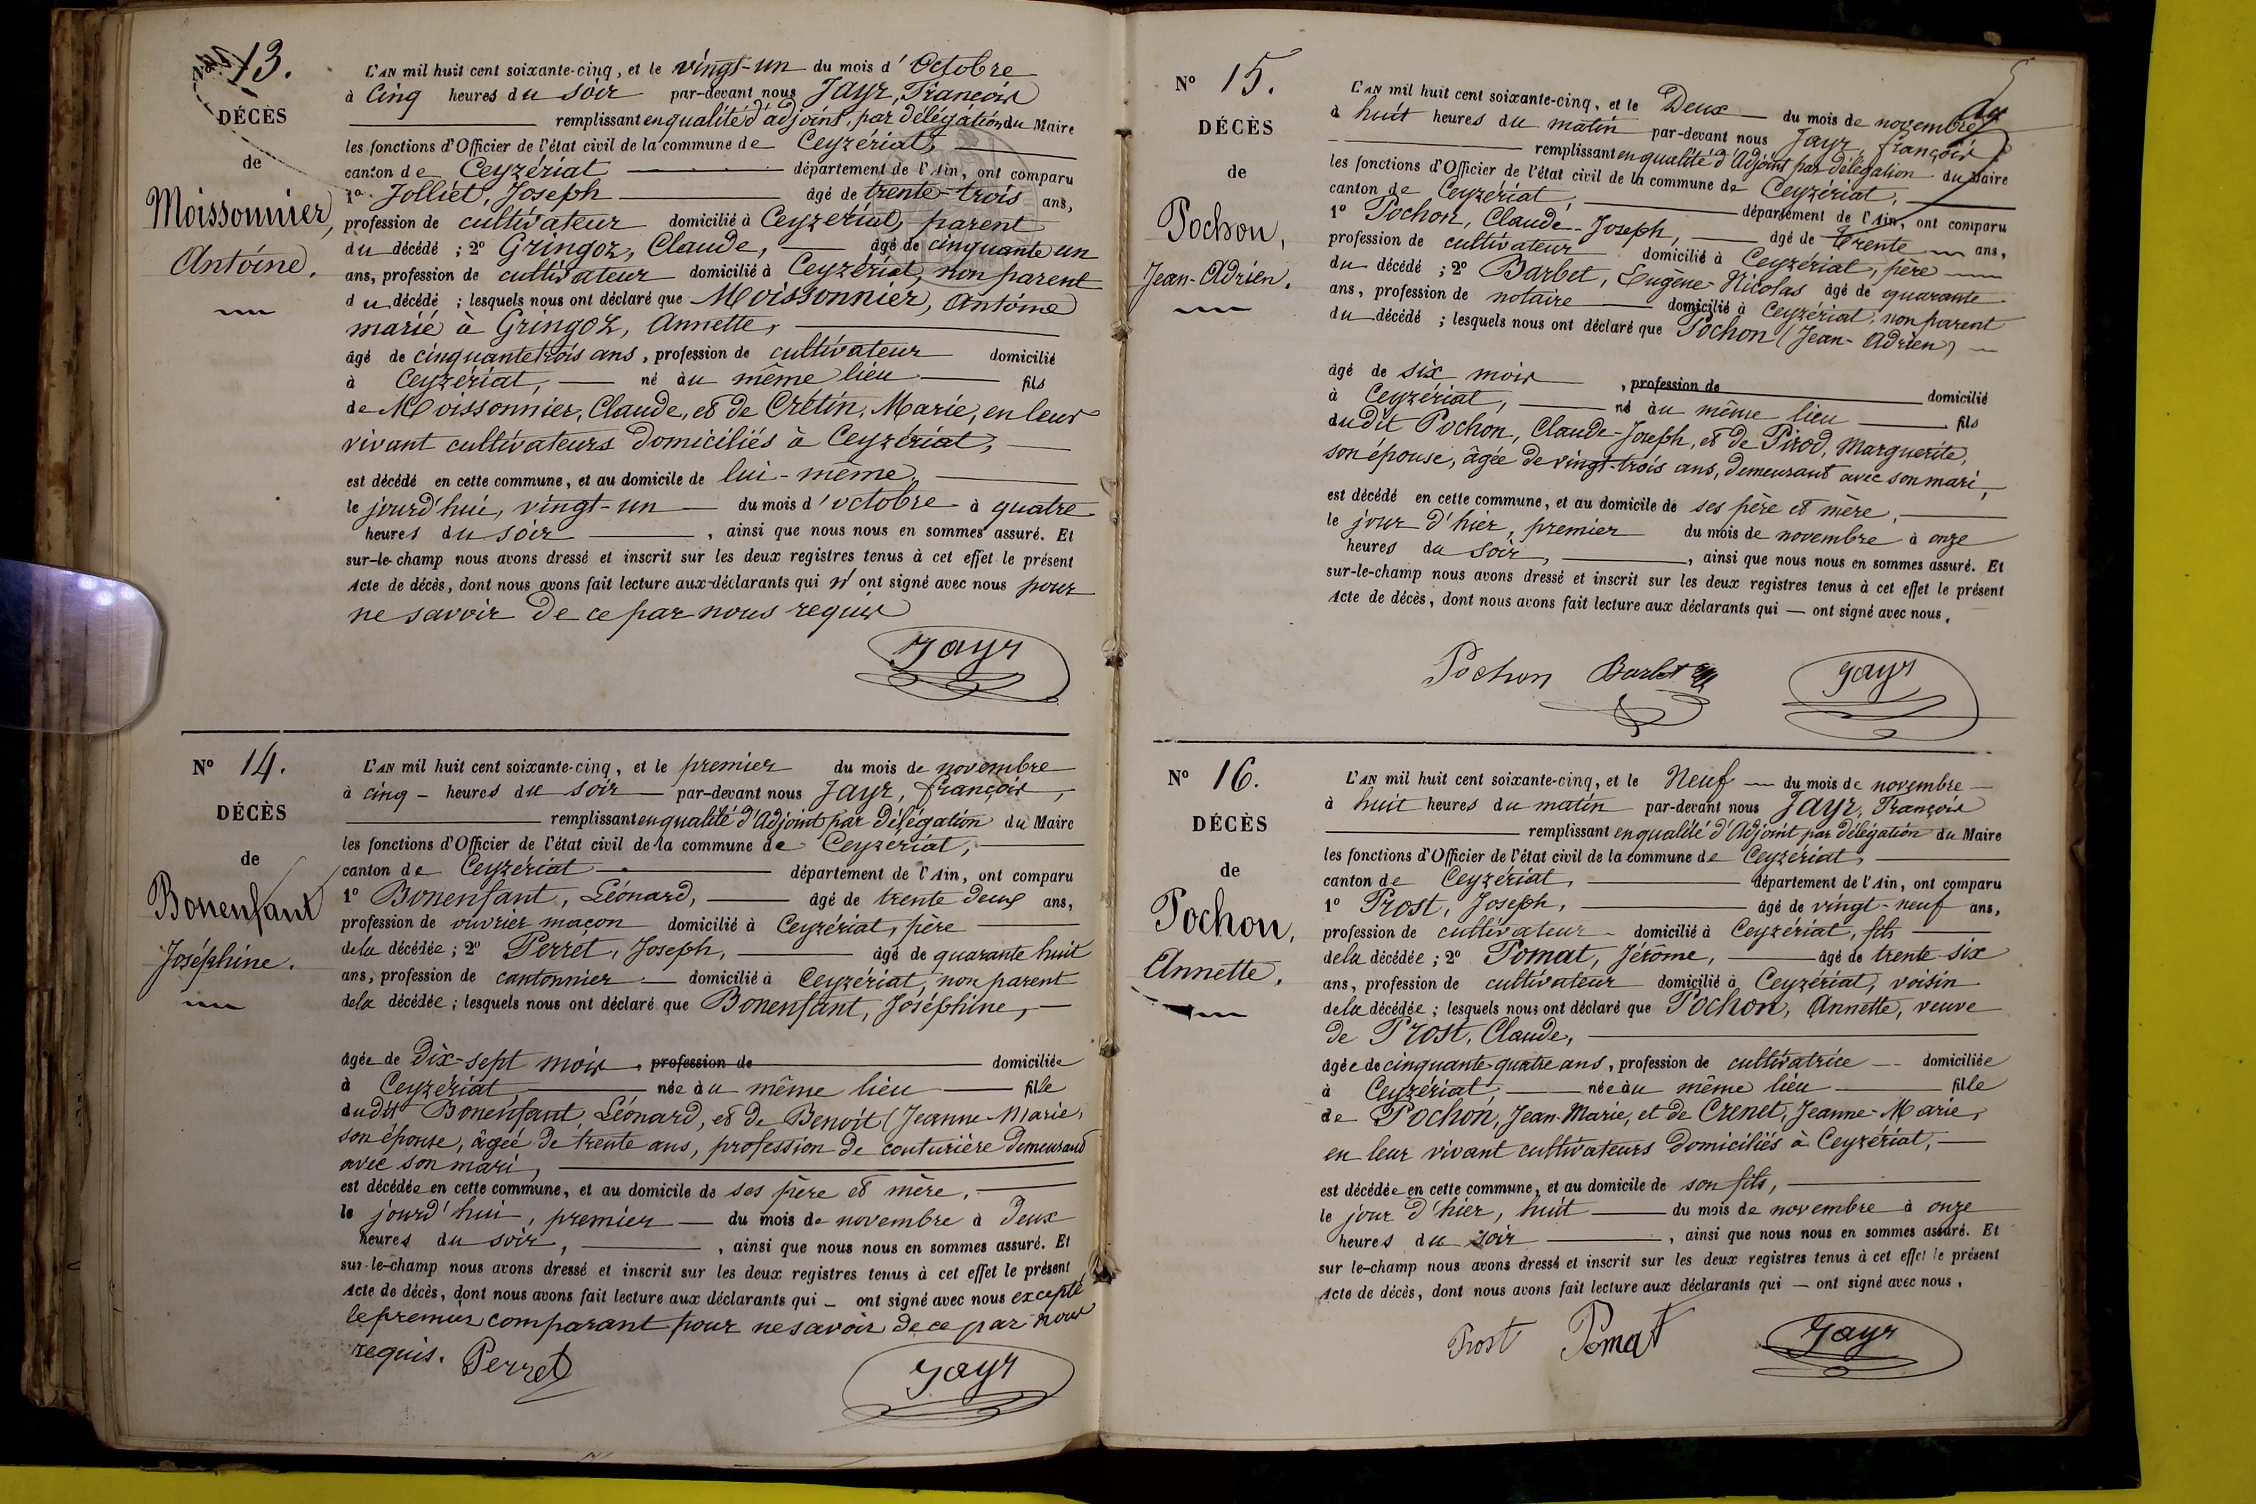 13.
DÉCÈS
de
Moissonnier,
Antoine.
L'AN mil huit cent soixante-cinq, et le vingt-un du mois d'Octobre
à Cinq heures du soir par-devant nous Jayr, François
remplissant en qualité d'adjoint, par délégation du Maire
les fonctions d'Officier de l'état civil de la commune de Ceyzériat,
canton de Ceyzériat département de l'Ain, ont comparu
1º Jolliet, Joseph âgé de trente-trois ans,
profession de cultivateur domicilié à Ceyzériat, parent
du décédé ; 2º Gringoz, Claude, âgé de cinquante un
ans, profession de cultivateur domicilié à Ceyzériat, non parent
du décédé ; lesquels nous ont déclaré que Moissonnier, Antoine
marié à Gringoz, Annette,
âgé de cinquante trois ans, profession de cultivateur domicilié
à Ceyzériat, né au même lieu fils
de Moissonnier, Claude, et de Crétin, Marie, en leur
vivant cultivateurs domiciliés à Ceyzériat,
est décédé en cette commune, et au domicile de lui-même,
le jourd'hui, vingt-un du mois d'octobre à quatre
heures du soir, ainsi que nous nous en sommes assuré. Et
sur-le-champ nous avons dressé et inscrit sur les deux registres tenus à cet effet le présent
Acte de décès, dont nous avons fait lecture aux déclarants qui n'ont signé avec nous pour
ne savoir de ce par nous requis
Jayr
Nº 14.
DÉCÈS
de
Bonenfant
Joséphine.
L'AN mil huit cent soixante-cinq, et le premier du mois de novembre
à cinq heures du soir par-devant nous Jayr, François,
remplissant en qualité d'Adjoint par délégation du Maire
les fonctions d'Officier de l'état civil de la commune de Ceyzériat,
canton de Ceyzériat département de l'Ain, ont comparu
1º Bonenfant, Léonard, âgé de trente deux ans,
profession de ouvrier maçon domicilié à Ceyzériat, père
de la décédée ; 2º Perret, Joseph, âgé de quarante huit
ans, profession de cantonnier domicilié à Ceyzériat, non parent
de la décédée ; lesquels nous ont déclaré que Bonenfant, Joséphine,
âgée de Dix-sept mois, profession de domiciliée
à Ceyzériat, née au même lieu fille
dudit Bonenfant, Léonard, et de Benoit (Jeanne-Marie,
son épouse, âgée de trente ans, profession de couturière demeurant
avec son mari,
est décédée en cette commune, et au domicile de ses père et mère,
le jourd'hui, premier du mois de novembre à deux
heures du soir, ainsi que nous nous en sommes assuré. Et
sur-le-champ nous avons dressé et inscrit sur les deux registres tenus à cet effet le présent
Acte de décès, dont nous avons fait lecture aux déclarants qui — ont signé avec nous excepté
le premier comparant pour ne savoir de ce par nous
requis. Perret
Jayr
Nº 15.
DÉCÈS
de
Pochon,
Jean-Adrien.
L'AN mil huit cent soixante-cinq, et le Deux du mois de novembre
à huit heures du matin par-devant nous Jayr, François,
remplissant en qualité d'Adjoint par délégation du Maire
les fonctions d'Officier de l'état civil de la commune de Ceyzériat,
canton de Ceyzériat, département de l'Ain, ont comparu
1º Pochon, Claude-Joseph, âgé de trente ans,
profession de cultivateur domicilié à Ceyzériat, père
du décédé ; 2º Barbet, Eugène-Nicolas âgé de quarante
ans, profession de notaire domicilié à Ceyzériat, non parent
du décédé ; lesquels nous ont déclaré que Pochon (Jean-Adrien)
âgé de six mois, profession de domicilié
à Ceyzériat, né au même lieu fils
dudit Pochon, Claude-Joseph, et de Pirod, Marguerite,
son épouse, âgée de vingt-trois ans, demeurant avec son mari,
est décédé en cette commune, et au domicile de ses père et mère,
le jour d'hier, premier du mois de novembre à onze
heures du soir, ainsi que nous nous en sommes assuré. Et
sur-le-champ nous avons dressé et inscrit sur les deux registres tenus à cet effet le présent
Acte de décès, dont nous avons fait lecture aux déclarants qui — ont signé avec nous.
Pochon Barbet Jayr
Nº 16.
DÉCÈS
de
Pochon,
Annette.
L'AN mil huit cent soixante-cinq, et le Neuf du mois de novembre
à huit heures du matin par-devant nous Jayr, François
remplissant en qualité d'Adjoint par délégation du Maire
les fonctions d'Officier de l'état civil de la commune de Ceyzériat,
canton de Ceyzériat, département de l'Ain, ont comparu
1º Prost, Joseph, âgé de vingt-neuf ans,
profession de cultivateur domicilié à Ceyzériat, fils
de la décédée ; 2º Pomat, Jérôme, âgé de trente-six
ans, profession de cultivateur domicilié à Ceyzériat, voisin
de la décédée ; lesquels nous ont déclaré que Pochon, Annette, veuve
de Prost, Claude,
âgée de cinquante-quatre ans, profession de cultivatrice domiciliée
à Ceyzériat, née au même lieu fille
de Pochon, Jean-Marie, et de Crenet, Jeanne-Marie,
en leur vivant cultivateurs domiciliés à Ceyzériat,
est décédée en cette commune, et au domicile de son fils,
le jour d'hier, huit du mois de novembre à onze
heures du soir, ainsi que nous nous en sommes assuré. Et
sur le-champ nous avons dressé et inscrit sur les deux registres tenus à cet effet le présent
Acte de décès, dont nous avons fait lecture aux déclarants qui — ont signé avec nous.
Prost Pomat Jayr